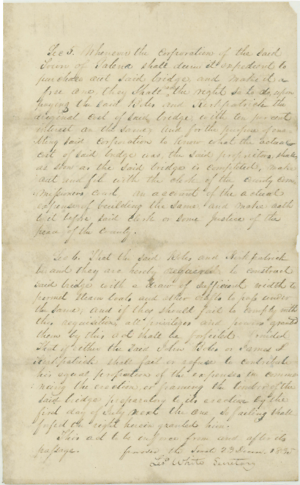 Sec 5. Whenever the corporation of the said
Town of Galena shall deem it expedient to
purchase said bridge and make it a
free one, they shall have the right so to do, upon
paying the said Bates and Kirkpatrick the
original cost of said bridge with ten per cent
interest on the same, and for the purpose of ena
bling said corporation to know what the actual
cost of said bridge was, the said proprietors shall
as soon as the said bridge is completed, make
out and file with the clerk of the county com
missioners court an account of the actual
expense of building the same and make oath
before said clerk or some justice of the
peace of the county.
Sec 6. That the said Bates and Kirkpatrick
be and they are hereby required to construct
said bridge with a draw of sufficient width to
permit steam boats and other crafts to pass under
the same, and if they should fail to comply with
this requisition, all privileges and powers granted
them by this act shall be forfeited. Provided
that if either the said John Bates or James
Kirkpatrick shall fail or refuse to contribute
his equal proportion of the expenses in commen
cing the erection or framing the timbers of the
said bridge preparatory to its erection by the
first day of July next the one so failing shall
forfeit the right herein granted him.
This act to be in force from and after its
passage.
passed the 23 1835
Leo White Secretary